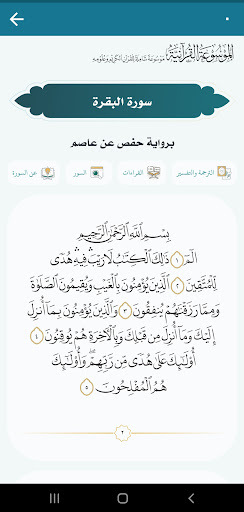 الموسوعة القرآنية موسوعة شاملة للقرآن الكريم وعلومه
سورة البقرة
برواية حفص عن عاصم
الترجمة والتفسير القراءات السور عن السورة
بِسْمِ اللَّهِ الرَّحْمَٰنِ الرَّحِيمِ
الٓمٓ ۝١ ذَٰلِكَ الْكِتَابُ لَا رَيْبَ ۛ فِيهِ ۛ هُدًى
لِّلْمُتَّقِينَ ۝٢ الَّذِينَ يُؤْمِنُونَ بِالْغَيْبِ وَيُقِيمُونَ الصَّلَاةَ
وَمِمَّا رَزَقْنَاهُمْ يُنفِقُونَ ۝٣ وَالَّذِينَ يُؤْمِنُونَ بِمَا أُنزِلَ
إِلَيْكَ وَمَا أُنزِلَ مِن قَبْلِكَ وَبِالْآخِرَةِ هُمْ يُوقِنُونَ ۝٤
أُولَٰئِكَ عَلَىٰ هُدًى مِّن رَّبِّهِمْ ۖ وَأُولَٰئِكَ
هُمُ الْمُفْلِحُونَ ۝٥
٢